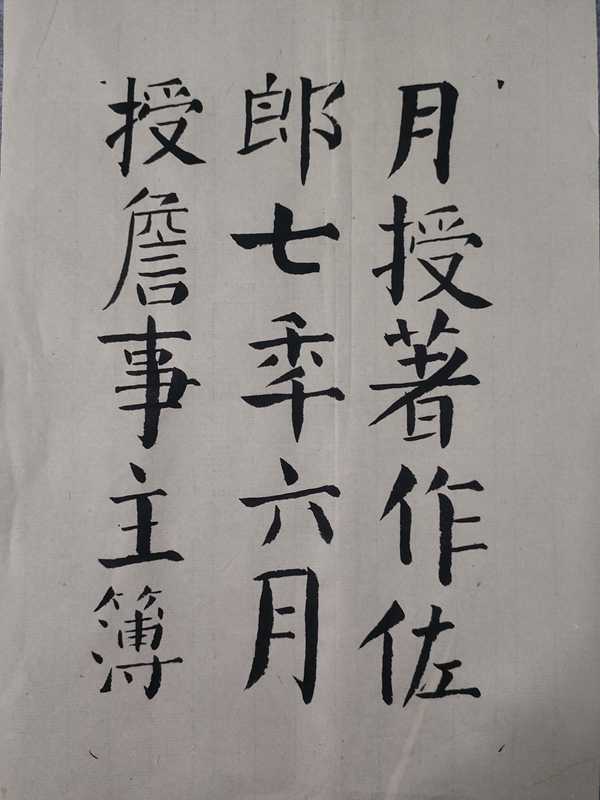 月授著作佐
郎七秊六月
授詹事主簿